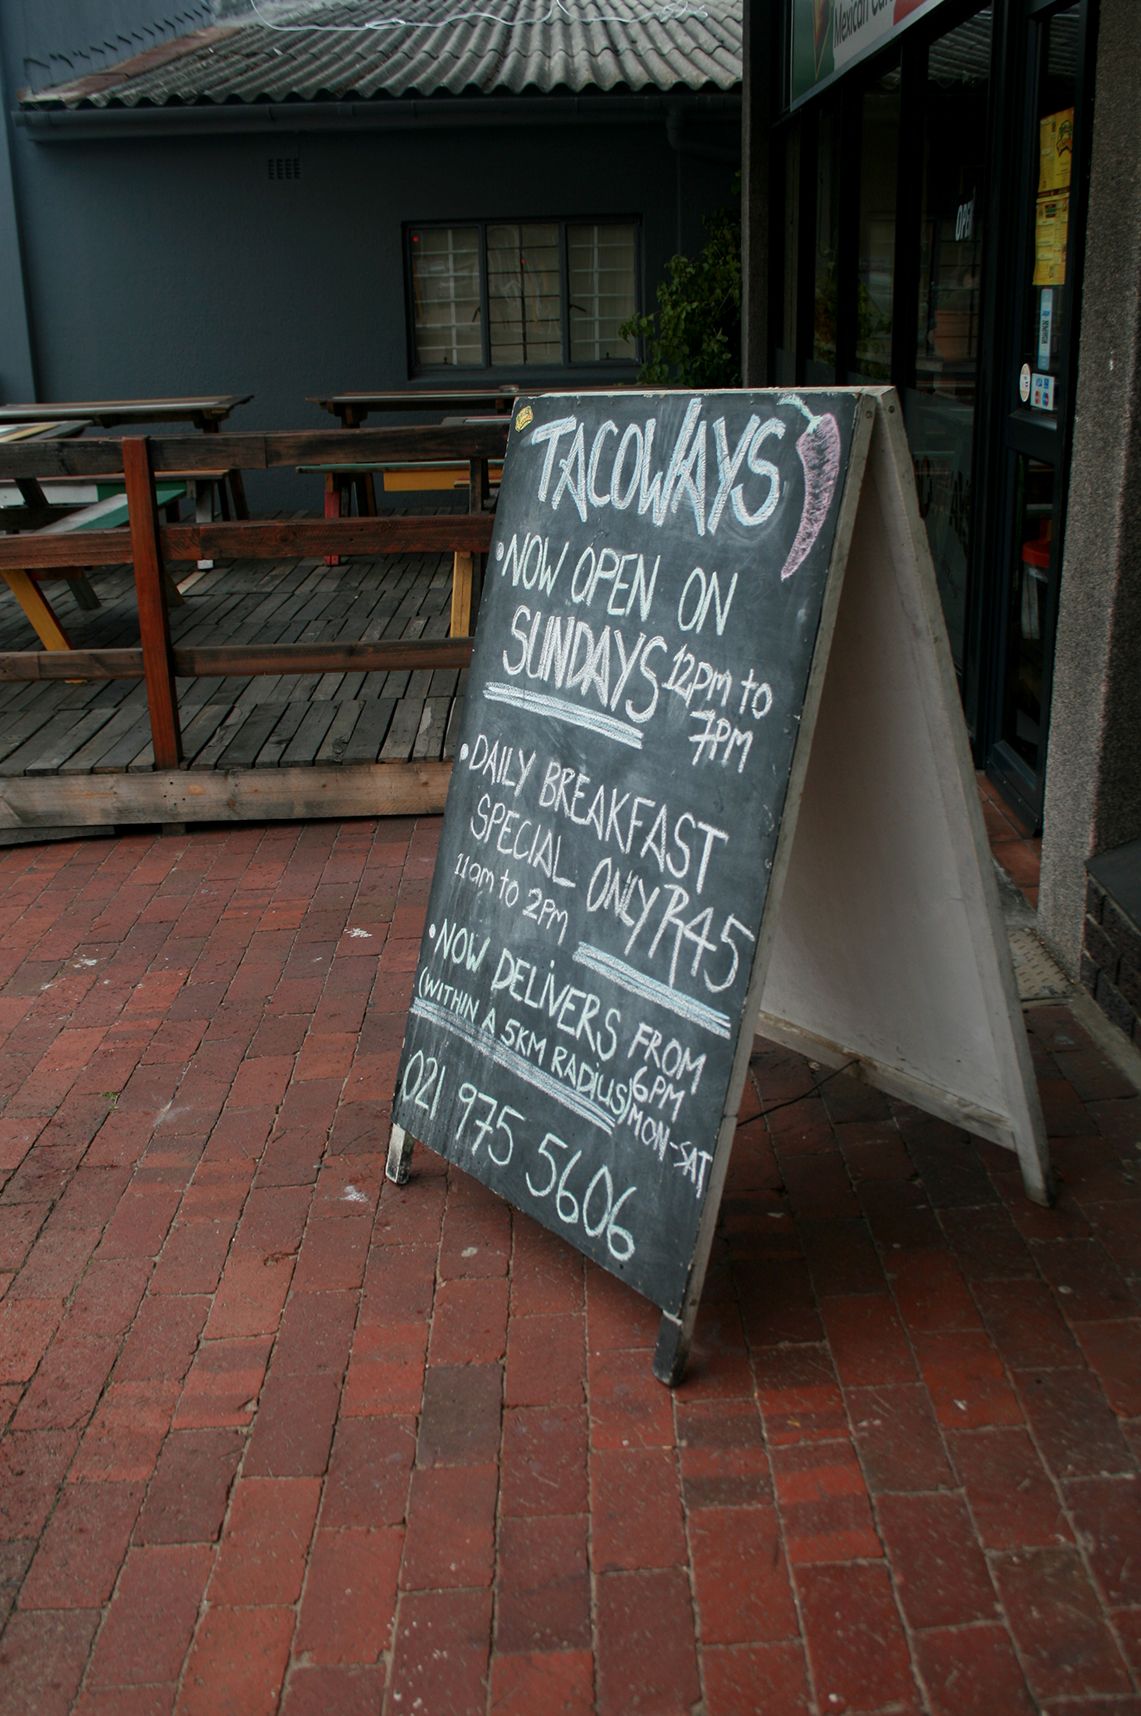 Mexican
OPEN
TACOWAYS
• NOW OPEN ON
SUNDAYS 12pm to
7PM
• DAILY BREAKFAST
SPECIAL ONLY R45
11am to 2pm
• NOW DELiVERS FROM
(WITHIN A 5KM RADiUS) 6PM
MON-SAT
021 975 5606